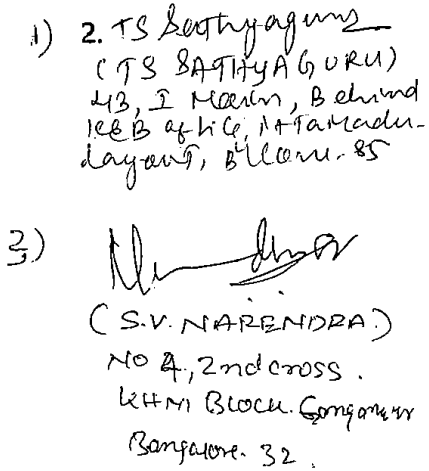 1) 2. TS Sathyaguru
(TS SATHYAGURU)
43, I Main, Behind
KEB office, Ittamadu
layout, B'lore. 85
2)
(S.V. NARENDRA.)
NO 4, 2nd cross.
KHM Block. Ganganagar
Bangalore. 32